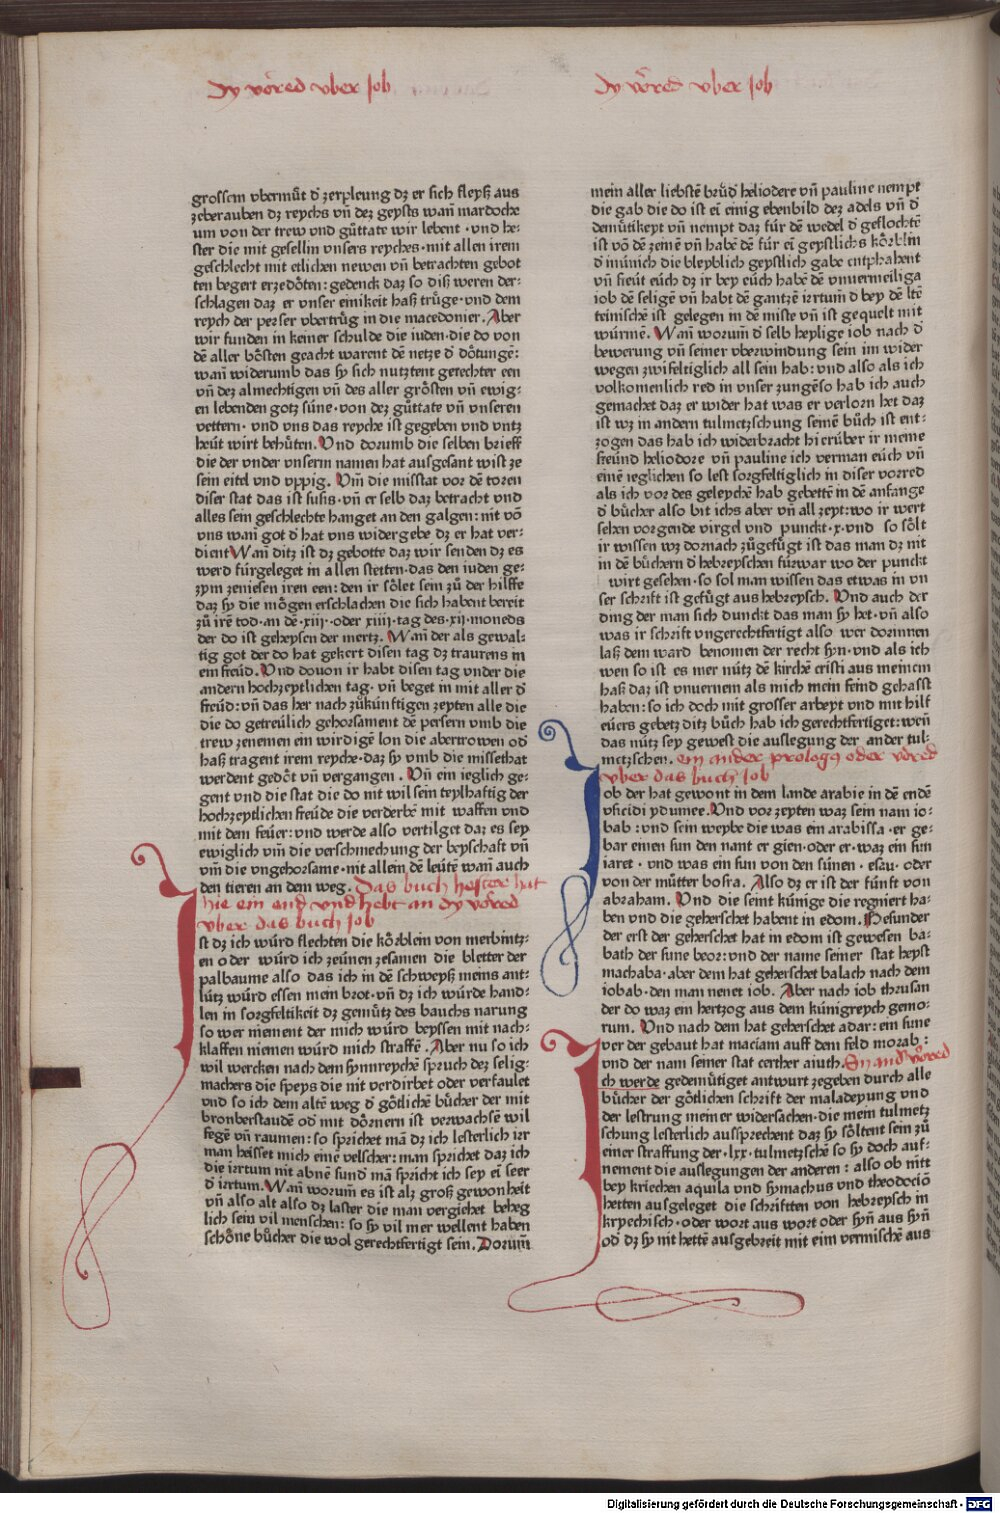 dy vored vber Job
dy vored vber Job
grossem vbermůt d̕ zerpleung dz er sich fleyß aus
zeberauben dz reychs vñ dez geysts wañ mardoche
um von der trew vnd gůttate wir lebent · vnd he⸗
ster die mit gesellin vnsers reyches · mit allen irem
geschlecht mit etlichen newen vñ betrachten gebot
ten begert erzedȯten : gedenck daz so diß weren der⸗
schlagen daz er vnser einikeit haß trůge · vnd dem
reych der perser vbertrůg in die macedonier. Aber
wir funden in keiner schulde die iuden · die do von
dē aller bȯsten geacht warent dē netze d̕ dȯtungē :
wañ widerumb das sy sich nutztent gerechter een
vñ dez almechtigen vñ des aller grȯsten vñ ewig⸗
en lebenden gotz sůne · von dez gůttate vñ vnseren
vettern · vnd vns das reyche ist gegeben vnd vntz
heůt wirt behůten. Vnd dorumb die selben brieff
die der vnder vnserm namen hat ausgesant wist ze
sein eitel vnd vppig. Vm̄ die misstat vor dē toren
diser stat das ist susis · vñ er selb daz betracht vnd
alles sein geschlechte hanget an den galgen : nit vō
vns wañ got d̕ hat vns widergebe dz er hat ver⸗
dient Wañ ditz ist dz gebotte daz wir senden dz es
werd fůrgeleget in allen stetten · das den iuden ge⸗
zym zeniesen iren een : den ir sȯlet sein zů der hilffe
daz sy die mȯgen erschlachen die sich habent bereit
zů irē tod · an dē · xiij · oder xiiij · tag des · xij · moneds
der do ist geheysen der mertz. Wañ der als gewal⸗
tig got der do hat gekert disen tag dz traurens in
ein freůd. Vnd douon ir habt disen tag vnder die
andern hochzeyptlichen tag · vñ beget in mit aller d̕
freůd : vñ das her nach zůkůnftigen zeyten alle die
die do getreůlich gehorsament dē persern vmb die
trew zenemen ein wirdigē lon die abertrowen od̕
haß tragent irem reyche · daz sy vmb die missethat
werdent gedȯt vñ vergangen . Vñ ein ieglich ge⸗
gent vnd die stat die do nit wil sein teylhaftig der
hochzeytlichen freůde die verderbē mit waffen vnd
mit dem feůer : vnd werde also vertilget daz es sey
ewiglich vm̄ die verschmechung der beyschaft vñ
vm̄ die vngehorsame · nit allein dē leůtē wañ auch
den tieren an dem weg. Das buch hester hat
hie ein end vnd hebt an dy vored
vber das buch Job
Ist dz ich wůrd flechten die kȯrblein von merbintz⸗
en oder wůrd ich zeůnen zesamen die bletter der
palbaume also das ich in dē schweyß meins ant⸗
lůtz wůrd essen mein brot · vñ dz ich wůrde hand⸗
len in sorgfeltikeit dz gemůtz des bauchs narung
so wer niement der mich wůrd beyssen mit nach⸗
klaffen niemen wůrd mich straffē . Aber nu so ich
wil wercken nach dem hymnreychē spruch dez selig⸗
machers die speys die nit verdirbet oder verfaulet
vnd so ich dem altē weg d̕ gȯtlichē bůcher der mit
bronberstaudē od̕ mit dȯrnern ist verwachsē wil
fegē vñ raumen : so sprichet mā dz ich lesterlich irr
man heisset mich einē velscher : man sprichet daz ich
die irrtum nit abnē sund mā spricht ich sey ei seer
d̕ irrtum. Wañ worum̄ es ist alz groß gewonheit
vñ also alt also dz laster die man vergiehet beheg
lich sein vil menschen : so sy vil mer wellent haben
schȯne bůcher die wol gerechtfertigt sein. Dorum̄
mein aller liebstē brůd̕ heliodere vñ pauline nempt
die gab die do ist ei einig ebenbild dez adels vñ d̕
demůtikeyt vñ nempt daz fůr dē wedel d̕ geflochtē
ist vō dē zeinē vñ habē dē fůr ei geystlichs kȯrblin
d̕ můnich die bleyblich geystlich gabe entphahent
vñ freůt eůch dz ir bey eůch habē dē vnuermeiliga
iob dē seligē vñ habt dē gantzē irrtum̄ d̕ bey dē ltē
teinischē ist gelegen in dē miste vñ ist gequelt mit
wůrmē. Wañ worum̄ d̕ selb heylige iob nach d̕
bewerung vñ seiner vberwindung sein im wider
wegen zwifeltiglich all sein hab : vnd also als ich
volkomenlich red in vnser zungē so hab ich auch
gemachet daz er wider hat was er verlorn het daz
ist wz in andern tulmetzschung seinē bůch ist ent⸗
zogen das hab ich widerbracht hierůber ir meine
freůnd heliodore vñ pauline ich verman eůch vñ
einē ieglichen so lest sorgfeltiglich in diser vorred
als ich vor des geleychē hab gebettē in dē anfange
d̕ bůcher also bit ichs aber vñ all zeyt : wo ir wert
sehen vorgende virgel vnd punckt · x · vnd so sȯlt
ir wissen wz dornach zůgefůgt ist das man dz nit
in dē bůchern d̕ hebreyschen fůrwar wo der punckt
wirt gesehen · so sol man wissen das etwas in vn
ser schrift ist gefůgt aus hebreysch. Vnd auch der
ding der man sich dunckt das man sy het · vñ also
was ir schrift vngerechtfertigt also wer dorinnen
laß dem ward benomen der recht syn · vnd als ich
wen so ist es mer nůtz dē kirchē cristi aus meinem
haß daz ist vnuernem als mich mein feind gehasst
haben : so ich doch mit grosser arbeyt vnd mit hilf
eůers gebetz ditz bůch hab ich gerechtfertiget : weñ
das nůtz sey gewest die auslegung der ander tul⸗
metzschen. ein ander prologꝰ oder vored
vber das buch Job
Iob der hat gewont in dem lande arabie in dē endē
vsicidi ydumee. Vnd vor zeyten waz sein nam io⸗
bab : vnd sein weybe die was ein arabissa · er ge⸗
bar einen sun den nant er gien · oder er waz ein sun
iaret · vnd was ein sun von den sůnen · esau · oder
von der můtter bosra. Also dz er ist der fůnft von
abraham. Vnd die seint kůnige die regniert ha⸗
ben vnd die geherschet habent in edom. Besunder
der erst der geherschet hat in edom ist gewesen ba⸗
bath der sune beor : vnd der name seiner stat heyst
machaba · aber dem hat geherschet balach nach dem
iobab · den man nenet iob. Aber nach iob thrusan
der do waz ein hertzog aus dem kůnigreych gemo⸗
rum. Vnd nach dem hat geherschet adar : ein sune
ver der gebaut hat maciam auff dem feld morab :
vnd der nam seiner stat certher aiuth. Ein and̕ vored
Ich werde gedemůtiget antwurt zegeben durch alle
bůcher der gȯtlichen schrift der maladeyung vnd
der lestrung meiner widersachen · die mein tulmetz
schung lesterlich aussprechent daz sy sȯltent sein zů
einer straffung der · lxx · tulmetzschē so sy doch auf⸗
nement die auslegungen der anderen : also ob nitt
bey kriechen aquila vnd symachus vnd theodociō
hetten ausgeleget die schriftten von hebreysch in
krychisch · oder wort aus wort oder syñ aus syñ
od̕ dz sy nit hettē ausgebreit mit eim vermischē aus
Digitalisierung gefördert durch die Deutsche Forschungsgemeinschaft - DFG